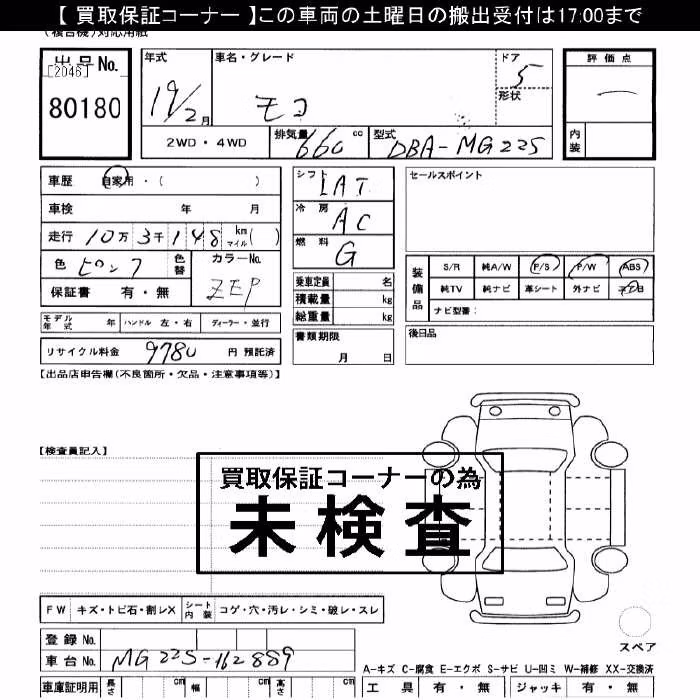 【 買取保証コーナー 】この車両の土曜日の搬出受付は17:00まで
(複合機)対応用紙
出品No.
[2046]
80180
年式
19/2月
車名・グレード
モコ
ドア
5
形状
評価点
—
内装
2WD・4WD
排気量 660 cc
型式 DBA-MG22S
車歴 自家用・( )
車検 年 月
走行 10万3千148 km マイル( )
色 ピンク
色替
カラーNo. ZEP
保証書 有・無
シフト IAT
冷房 AC
燃料 G
乗車定員 名
積載量 kg
総重量 kg
セールスポイント
装備品
S/R 純A/W P/S P/W ABS
純TV 純ナビ 革シート 外ナビ
ナビ型番:
モデル年式 年 ハンドル 左・右 ディーラー・並行
書類期限
月 日
後日品
リサイクル料金 9780 円 預託済
【出品店申告欄(不良箇所・欠品・注意事項等)】
【検査員記入】
買取保証コーナーの為
未検査
FW キズ・トビ石・割レX
シート内装 コゲ・穴・汚レ・シミ・破レ・スレ
スペア
登録No.
車台No. MG22S-162889
A-キズ C-腐食 E-エクボ S-サビ U-凹ミ W-補修 XX-交換済
車庫証明用 長さ cm 幅 cm 高さ cm
工具 有・無 ジャッキ 有・無